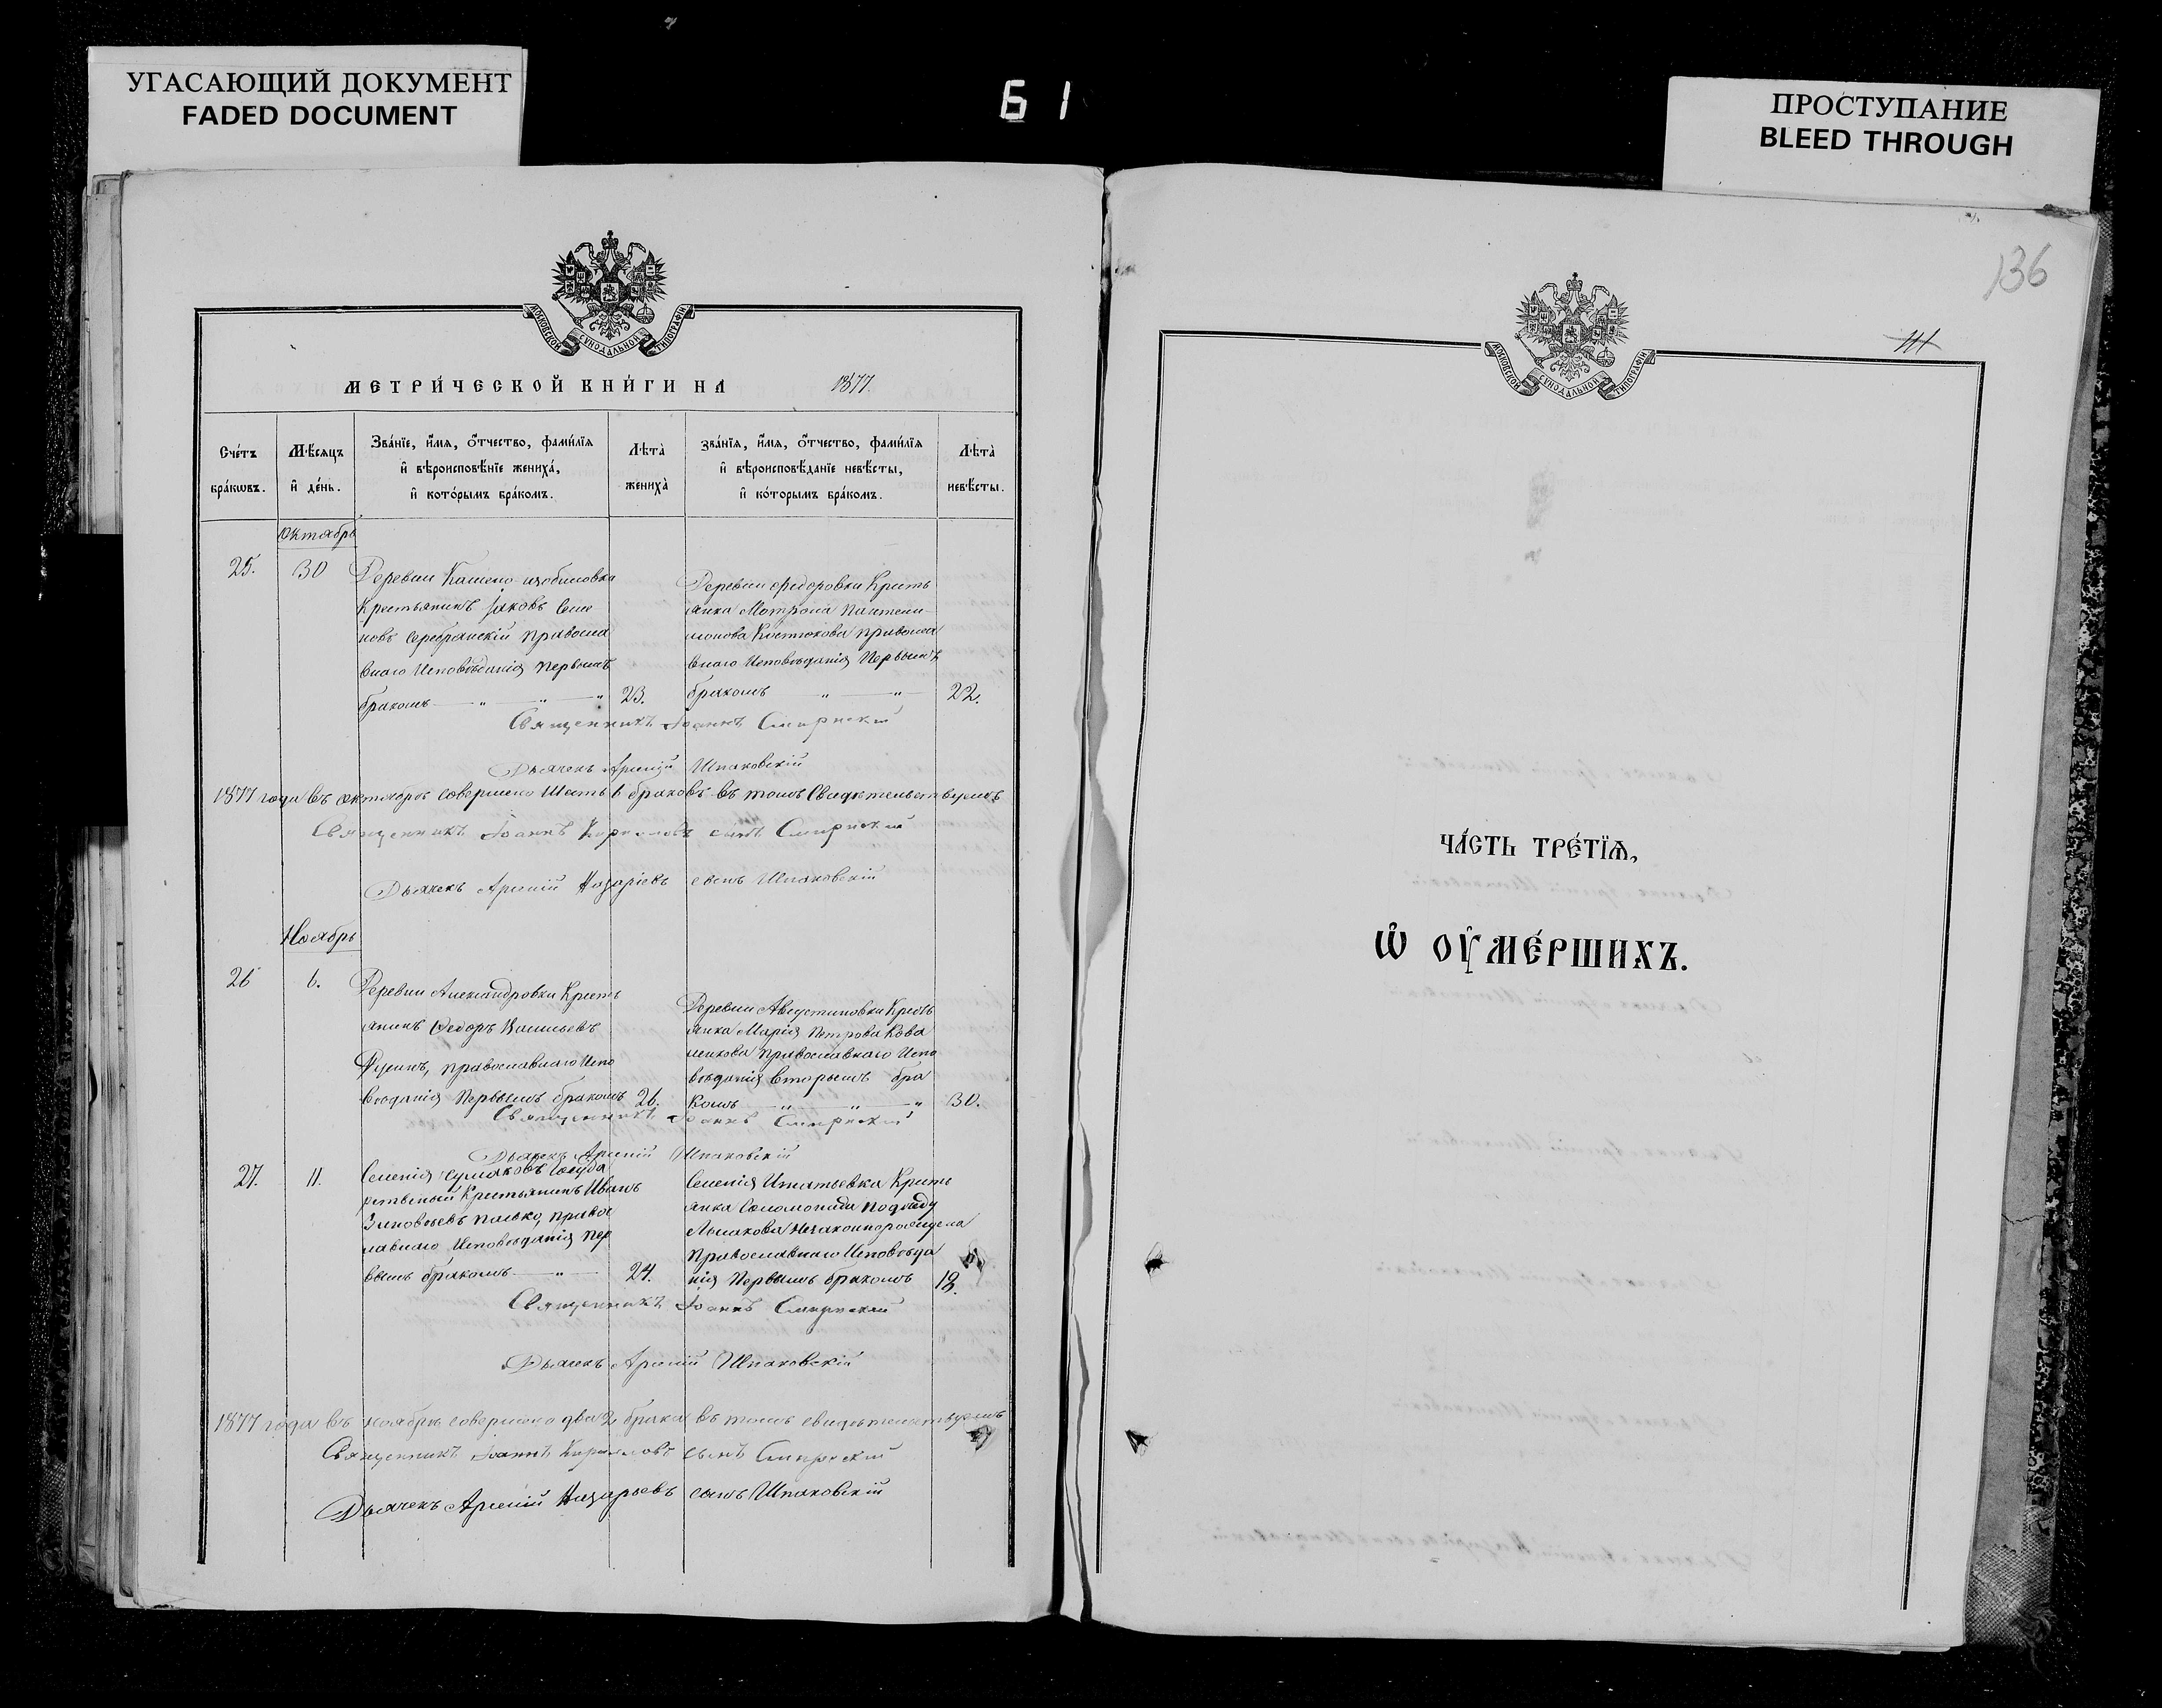 УГАСАЮЩИЙ ДОКУМЕНТ
FADED DOCUMENT
61
ПРОСТУПАНИЕ
BLEED THROUGH
МОСКОВСКОЙ СѴНОДАЛЬНОЙ ТИПОГРАФІИ
МЕТРИ́ЧЕСКОЙ КНИ́ГИ НА 1877.
Сче́тъ
бра́кѡвъ.
Мѣ́сяцъ
и҆ де́нь.
Зва́нїе, и҆́мѧ, ѻ҆́тчество, фами́лїѧ
и҆ вѣроисповѣ́нїе жениха́,
и҆ кото́рымъ бра́комъ.
Лѣта̀
жениха̀
зва́нїѧ, и҆́мѧ, ѻ҆́тчество, фами́лїѧ
и҆ вѣроисповѣ́данїе невѣ́сты,
и҆ ко́торымъ бра́комъ.
Лѣта̀
невѣ́сты.
Октябрь
25.
30
Деревни Камено-
крестьянинъ Іаковъ Семе
новъ Серебранскій Правосла
внаго Исповѣданія первымъ
бракомъ — „ — „ — „
23.
Деревни Федоровки Кресть
янка Матрона Пантели
монова Костюкова Правосла
внаго Исповѣданія Первымъ
бракомъ — „ — „ —
22.
Священникъ Іоаннъ Смирнскій
Дьячекъ Арсеній Шпаковскій
1877 года въ октябрѣ совершено Шесть 6 браковъ въ томъ Свидѣтельствуемъ
Священникъ Іоаннъ Кирилловъ сынъ Смирнскій
Дьячекъ Арсеній Назаріевъ сынъ Шпаковскій
Ноябрь
26
6.
Деревни Александровки Кресть
янинъ Ѳедоръ Васильевъ
православнаго Испо
вѣданія Первымъ бракомъ
26.
Деревни Августиновки Кресть
янка Марія Петрова Кова
ленкова Православнаго Испо
вѣданія вторымъ бра
комъ „ — „ — „
30.
Священникъ Іоаннъ Смирнскій
Дьячекъ Арсеній Шпаковскій
27.
11.
Селенія Государ
ственый Крестьянинъ Иванъ
Зиновьевъ Правос
лавнаго Исповѣданія пер
вымъ бракомъ — „ —
24.
Селенія Игнатьевка Кресть
янка Соломонида
Незаконнорожденна
Православнаго Исповѣда
нія Первымъ бракомъ
18.
Священникъ Іоаннъ Смирнскій
Дьячекъ Арсеній Шпаковскій
1877 года въ ноябрѣ совершено два 2 брака въ томъ свидѣтельствуемъ
Священникъ Іоаннъ Кирилловъ сынъ Смирнскій
Дьячекъ Арсеній Назарьевъ сынъ Шпаковскій
136
МОСКОВСКОЙ СѴНОДАЛЬНОЙ ТИПОГРАФІИ
ЧА́СТЬ ТРЕ́ТЇѦ,
Ѡ҆ ОУ҆МЕ́РШИХЪ.